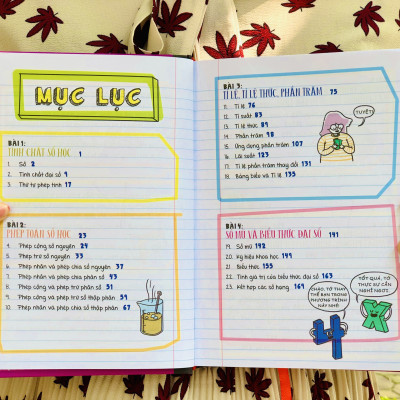 MỤC LỤC
BÀI 1:
TÍNH CHẤT SỐ HỌC 1
1. Số 2
2. Tính chất đại số 9
3. Thứ tự phép tính 17
BÀI 2:
PHÉP TOÁN SỐ HỌC 23
4. Phép cộng số nguyên 24
5. Phép trừ số nguyên 33
6. Phép nhân và phép chia số nguyên 37
7. Phép nhân và phép chia phân số 43
8. Phép cộng và phép trừ phân số 51
9. Phép cộng và phép trừ số thập phân 59
10. Phép nhân và phép chia số thập phân 67
BÀI 3:
TỈ LỆ, TỈ LỆ THỨC, PHẦN TRĂM 75
11. Tỉ lệ 76
12. Tỉ suất 83
13. Tỉ lệ thức 89
14. Phần trăm 98
15. Ứng dụng phần trăm 107
16. Lãi suất 123
17. Tỉ lệ phần trăm thay đổi 131
18. Bảng biểu và Tỉ lệ 135
TUYỆT!
BÀI 4:
SỐ MŨ VÀ BIỂU THỨC ĐẠI SỐ 141
19. Số mũ 142
20. Ký hiệu khoa học 149
21. Biểu thức 155
22. Tính giá trị của biểu thức đại số 163
23. Kết hợp các số hạng 169
CHÀO, TỚ THAY
THẾ BẠN TRONG
PHƯƠNG TRÌNH
NÀY NHÉ!
TỐT QUÁ, TỚ
THỰC SỰ CẦN
NGHỈ NGƠI.
4
X